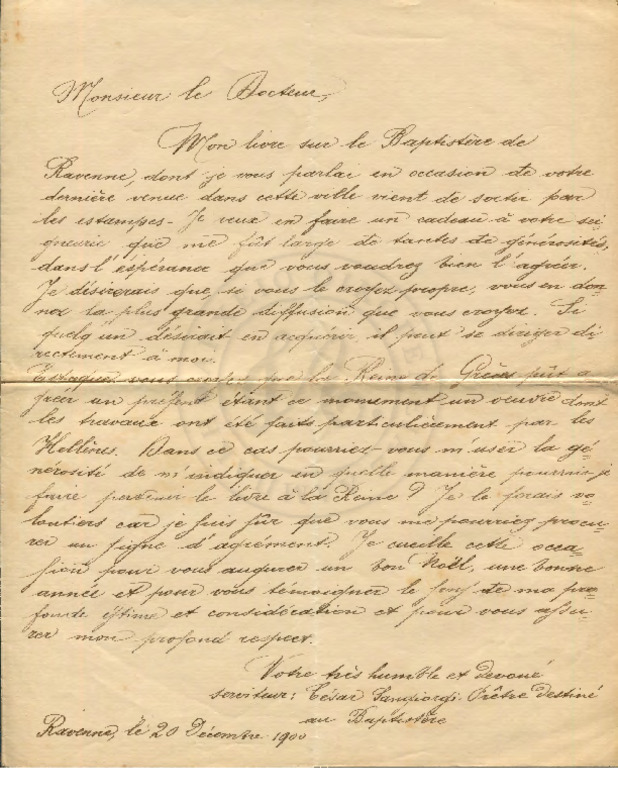 Monsieur le Docteur,
Mon livre sur le Baptistère de
Ravenne, dont je vous parlac en occasion de votre
dernière venue dans cette ville vient de sortir par
les estampes - Je veux en faire un cadeau à votre sei
gneurie que me fût large de tantes de générosités,
dans l'éspérance que vous voudrez bien l'agréer.
Je désirerais que, si vous le croyez propre, vous en don-
nez la plus grande diffusion que vous croyez. Si
quelq'un désirait en acquérir il peut se diriger di
rectement à moi.
vous croyez que la Reine de Grèces pût a
gréer un présent étant ce monument un oeuvre dont
les travaux ont été faits particulièrement par les
Hellènes. Dans ce cas pourriez-vous m'user la gé-
nérosité de m'indiquer en quelle manière pourrais-je
faire parvenir le livre à la Reine? Je le ferais vo-
loutiers car je suis sûr que vous me pourriez procu-
rer un signe d'agrément. Je cueille cette occa-
sion pour vous augurer un bon Noël, une bonne
année et pour vous témoigner le de ma pro
fonde éstime et considération et pour vous assu-
rer mon profond respect.
Votre très humble et devoué
serviteur: César Sangiorgi Prêtre destiné
au Baptistère
Ravenne, le 20 Décembre 1900